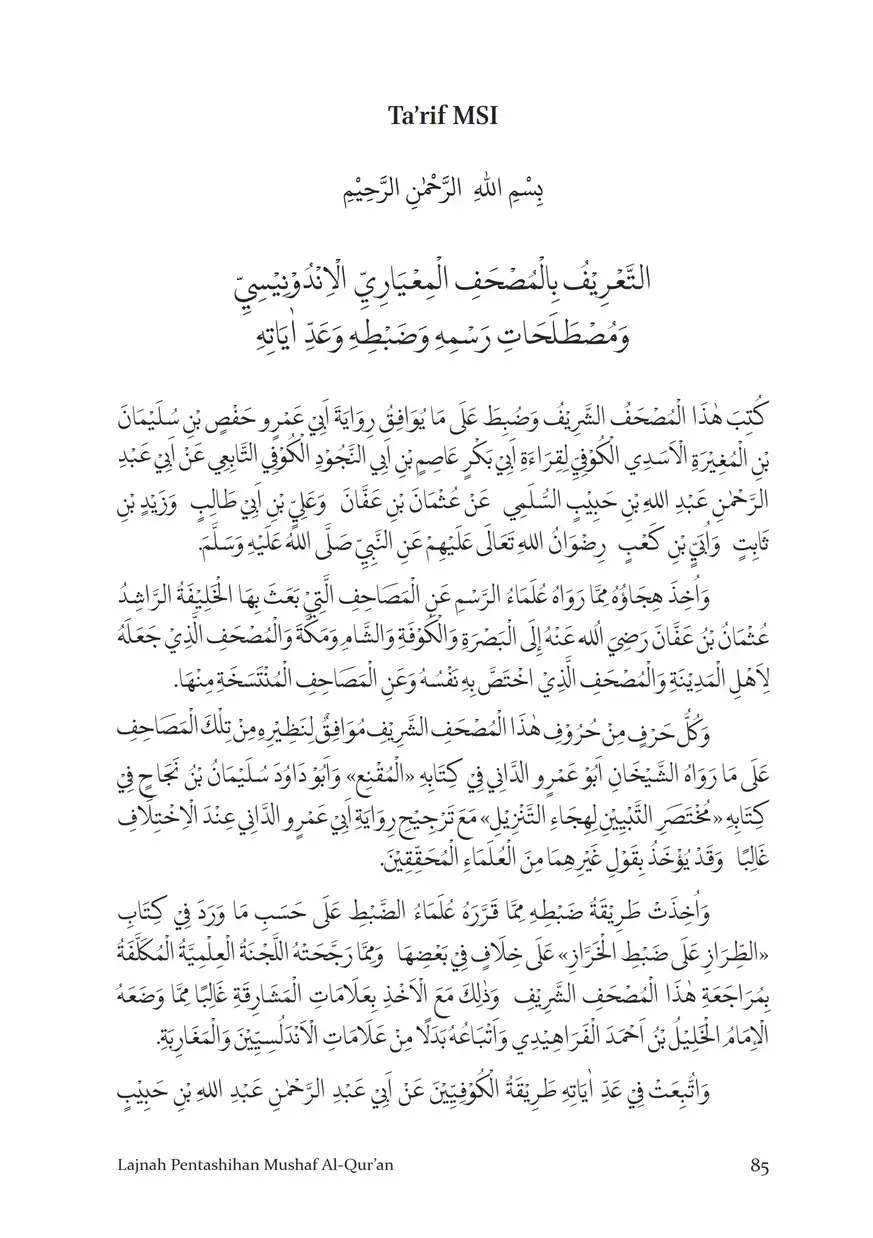 Ta’rif MSI
بِسْمِ اللهِ الرَّحْمٰنِ الرَّحِيْمِ
التَّعْرِيْفُ بِالْمُصْحَفِ الْمِعْيَارِيِّ الْاِنْدُوْنِيْسِيِّ
وَمُصْطَلَحَاتِ رَسْمِهِ وَضَبْطِهِ وَعَدِّ اٰيَاتِهِ
كُتِبَ هٰذَا الْمُصْحَفُ الشَّرِيْفُ وَضُبِطَ عَلَى مَا يُوَافِقُ رِوَايَةَ اَبِيْ عَمْرٍو حَفْصِ بْنِ سُلَيْمَانَ
بْنِ الْمُغِيْرَةِ الْاَسَدِي الْكُوْفِيِّ لِقِرَاءَةِ اَبِيْ بَكْرٍ عَاصِمِ بْنِ اَبِي النَّجُوْدِ الْكُوْفِيِّ التَّابِعِي عَنْ اَبِيْ عَبْدِ
الرَّحْمٰنِ عَبْدِ اللهِ بْنِ حَبِيْبٍ السُّلَمِي عَنْ عُثْمَانَ بْنِ عَفَّانَ وَعَلِيِّ بْنِ اَبِيْ طَالِبٍ وَزَيْدِ بْنِ
ثَابِتٍ وَاُبَيِّ بْنِ كَعْبٍ رِضْوَانُ اللهِ تَعَالَى عَلَيْهِمْ عَنِ النَّبِيِّ صَلَّى اللهُ عَلَيْهِ وَسَلَّمَ.
وَاُخِذَ هِجَاؤُهُ مِمَّا رَوَاهُ عُلَمَاءُ الرَّسْمِ عَنِ الْمَصَاحِفِ الَّتِيْ بَعَثَ بِهَا الْخَلِيْفَةُ الرَّاشِدُ
عُثْمَانُ بْنُ عَفَّانَ رَضِيَ الله عَنْهُ إِلَى الْبَصْرَةِ وَالْكُوْفَةِ وَالشَّامِ وَمَكَّةَ وَالْمُصْحَفِ الَّذِيْ جَعَلَهُ
لِاَهْلِ الْمَدِيْنَةِ وَالْمُصْحَفِ الَّذِيْ اخْتَصَّ بِهِ نَفْسُهُ وَعَنِ الْمَصَاحِفِ الْمُنْتَسَخَةِ مِنْهَا.
وَكُلُّ حَرْفٍ مِنْ حُرُوْفِ هٰذَا الْمُصْحَفِ الشَّرِيْفِ مُوَافِقٌ لِنَظِيْرِهِ مِنْ تِلْكَ الْمَصَاحِفِ
عَلَى مَا رَوَاهُ الشَّيْخَانِ اَبُوْ عَمْرٍو الدَّانِي فِيْ كِتَابِهِ «الْمُقْنِعِ» وَاَبُوْ دَاوُدَ سُلَيْمَانُ بْنُ نَجَاحٍ فِيْ
كِتَابِهِ «مُخْتَصَرِ التَّبْيِيْنِ لِهِجَاءِ التَّنْزِيْلِ» مَعَ تَرْجِيْحِ رِوَايَةِ اَبِيْ عَمْرٍو الدَّانِي عِنْدَ الْاِخْتِلَافِ
غَالِبًا وَقَدْ يُؤْخَذُ بِقَوْلِ غَيْرِهِمَا مِنَ الْعُلَمَاءِ الْمُحَقِّقِيْنَ.
وَاُخِذَتْ طَرِيْقَةُ ضَبْطِهِ مِمَّا قَرَّرَهُ عُلَمَاءُ الضَّبْطِ عَلَى حَسَبِ مَا وَرَدَ فِيْ كِتَابِ
«الطِّرَازِ عَلَى ضَبْطِ الْخَرَّازِ» عَلَى خِلَافٍ فِيْ بَعْضِهَا وَمِمَّا رَجَّحَتْهُ اللَّجْنَةُ الْعِلْمِيَّةُ الْمُكَلَّفَةُ
بِمُرَاجَعَةِ هٰذَا الْمُصْحَفِ الشَّرِيْفِ وَذٰلِكَ مَعَ الْاَخْذِ بِعَلَامَاتِ الْمَشَارِقَةِ غَالِبًا مِمَّا وَضَعَهُ
الْاِمَامُ الْخَلِيْلُ بْنُ اَحْمَدَ الْفَرَاهِيْدِي وَاَتْبَاعُهُ بَدَلًا مِنْ عَلَامَاتِ الْاَنْدَلُسِيِّيْنَ وَالْمَغَارِبَةِ.
وَاتُّبِعَتْ فِيْ عَدِّ اٰيَاتِهِ طَرِيْقَةُ الْكُوْفِيِّيْنَ عَنْ اَبِيْ عَبْدِ الرَّحْمٰنِ عَبْدِ اللهِ بْنِ حَبِيْبٍ
Lajnah Pentashihan Mushaf Al-Qur’an 85